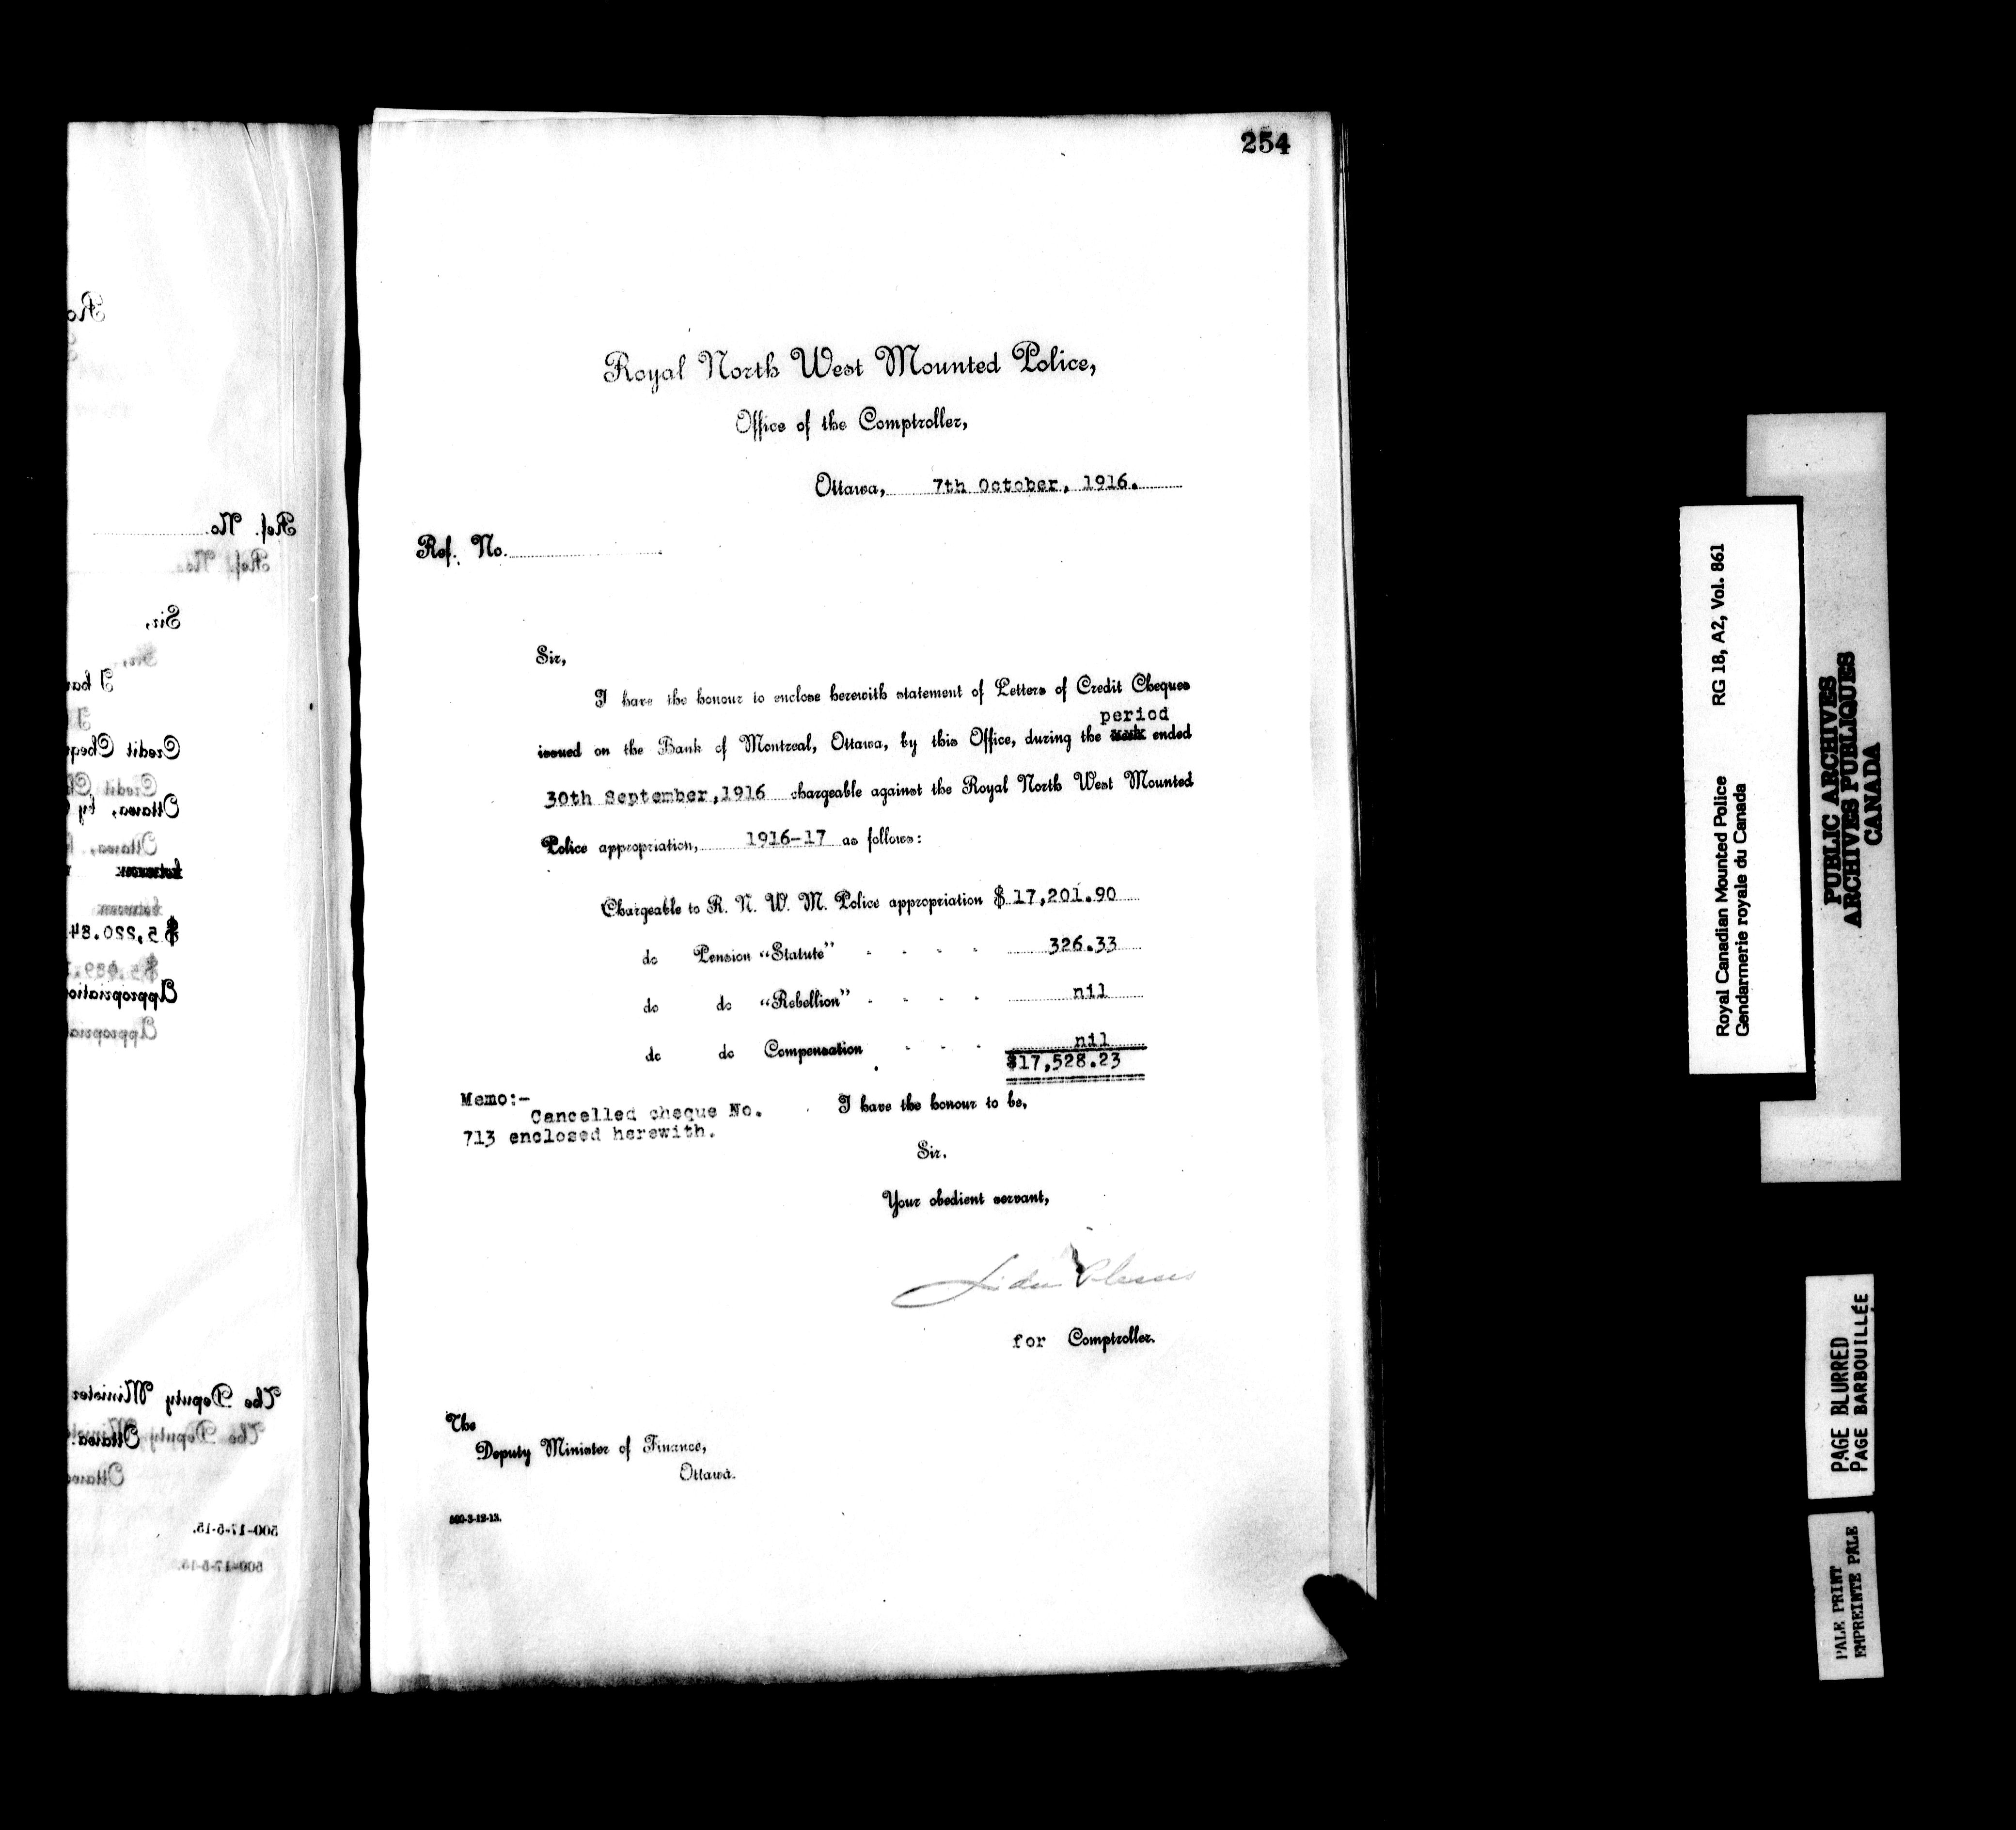 254
Royal North West Mounted Police,
Office of the Comptroller,
Ottawa, 7th October, 1916.
Ref. No.
Sir,
I have the honour to enclose herewith statement of Letters of Credit Cheques
period
issued on the Bank of Montreal, Ottawa, by this Office, during the week ended
30th September,1916 chargeable against the Royal North West Mounted
Police appropriation, 1916-17 as follows:
Chargeable to R. N. W. M. Police appropriation $ 17,201.90
do Pension "Statute" - - - - 326.33
do do "Rebellion" - - - - nil
do do Compensation - - - nil
$17,528.23
Memo:-
Cancelled cheque No.
713 enclosed herewith.
I have the honour to be,
Sir.
Your obedient servant,
for Comptroller.
The
Deputy Minister of Finance,
Ottawa.
500-3-12-13.
Ref. No.
Ref. No.
Sir,
Sir,
I hav
Credit Cheq
Credit Ch
Ottawa, by
Ottawa,
between
between
$5,220.84
Appropriatio
Appropria
The Deputy Minister
The Deputy Minist
Ottawa.
Ottawa
500-17-5-15.
500-17-5-15.
Royal Canadian Mounted Police RG 18, A2, Vol. 861
Gendarmerie royale du Canada
PUBLIC ARCHIVES
ARCHIVES PUBLIQUES
CANADA
PAGE BLURRED
PAGE BARBOUILLÉE
PALE PRINT
EMPREINTE PALE